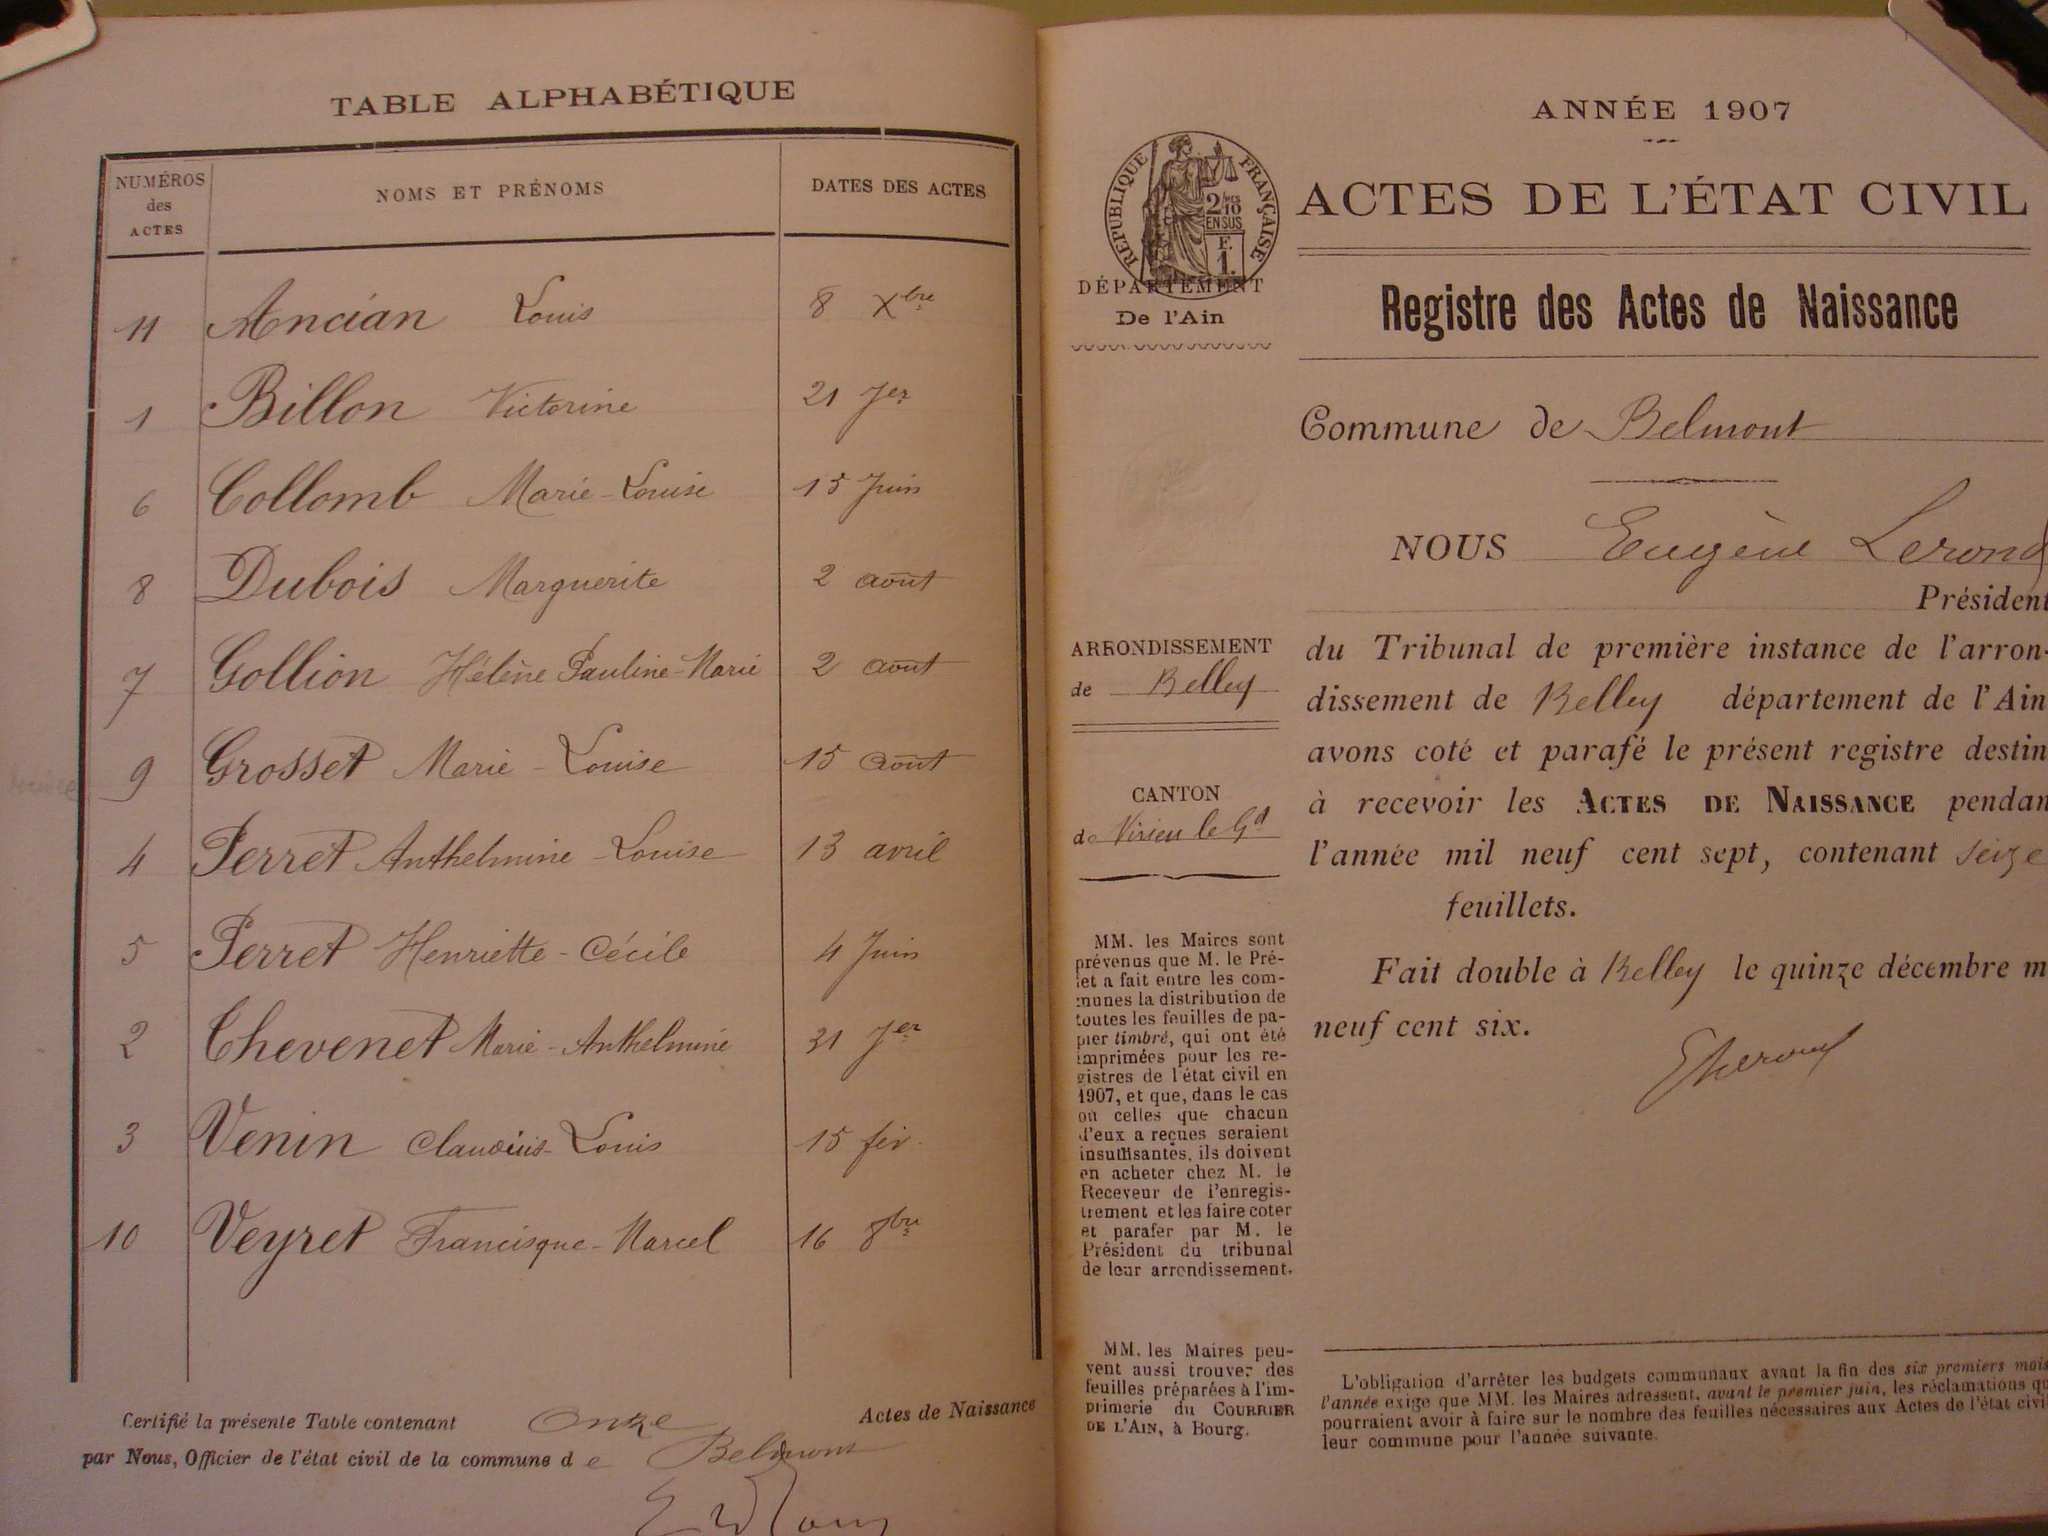 TABLE ALPHABÉTIQUE
NUMÉROS des ACTES NOMS ET PRÉNOMS DATES DES ACTES
11 Ancian Louis 8 Xbre
1 Billon Victorine 21 Jer
6 Collomb Marie-Louise 15 Juin
8 Dubois Marguerite 2 août
7 Gollion Hélène Pauline-Marie 2 août
9 Grosset Marie-Louise 15 août
4 Perret Anthelmine-Louise 13 avril
5 Perret Henriette-Cécile 4 Juin
2 Thevenet Marie-Anthelmine 31 Jer
3 Venin Claudius-Louis 15 fév.
10 Veyret Francisque-Marcel 16 8bre
Certifié la présente Table contenant Onze Actes de Naissance
par Nous, Officier de l'état civil de la commune de Belmont
ANNÉE 1907
RÉPUBLIQUE FRANÇAISE
2/10
EN SUS
F.
1.
ACTES DE L'ÉTAT CIVIL
DÉPARTEMENT
De l'Ain
Registre des Actes de Naissance
Commune de Belmont
NOUS Eugène Lerond
Président
ARRONDISSEMENT
de Belley
CANTON
de Virieu le Gd
du Tribunal de première instance de l'arron-
dissement de Belley département de l'Ain
avons coté et parafé le présent registre destin
à recevoir les ACTES DE NAISSANCE pendan
l'année mil neuf cent sept, contenant seize
feuillets.
Fait double à Belley le quinze décembre m
neuf cent six.
MM. les Maires sont
prévenus que M. le Pré-
fet a fait entre les com-
munes la distribution de
toutes les feuilles de pa-
pier timbré, qui ont été
imprimées pour les re-
gistres de l'état civil en
1907, et que, dans le cas
où celles que chacun
d'eux a reçues seraient
insuffisantes, ils doivent
en acheter chez M. le
Receveur de l'enregis-
trement et les faire coter
et parafer par M. le
Président du tribunal
de leur arrondissement.
MM. les Maires peu-
vent aussi trouver des
feuilles préparées à l'im-
primerie du COURRIER
DE L'AIN, à Bourg.
L'obligation d'arrêter les budgets communaux avant la fin des six premiers mois
l'année exige que MM. les Maires adressent, avant le premier juin, les réclamations qu
pourraient avoir à faire sur le nombre des feuilles nécessaires aux Actes de l'état civil
leur commune pour l'année suivante.